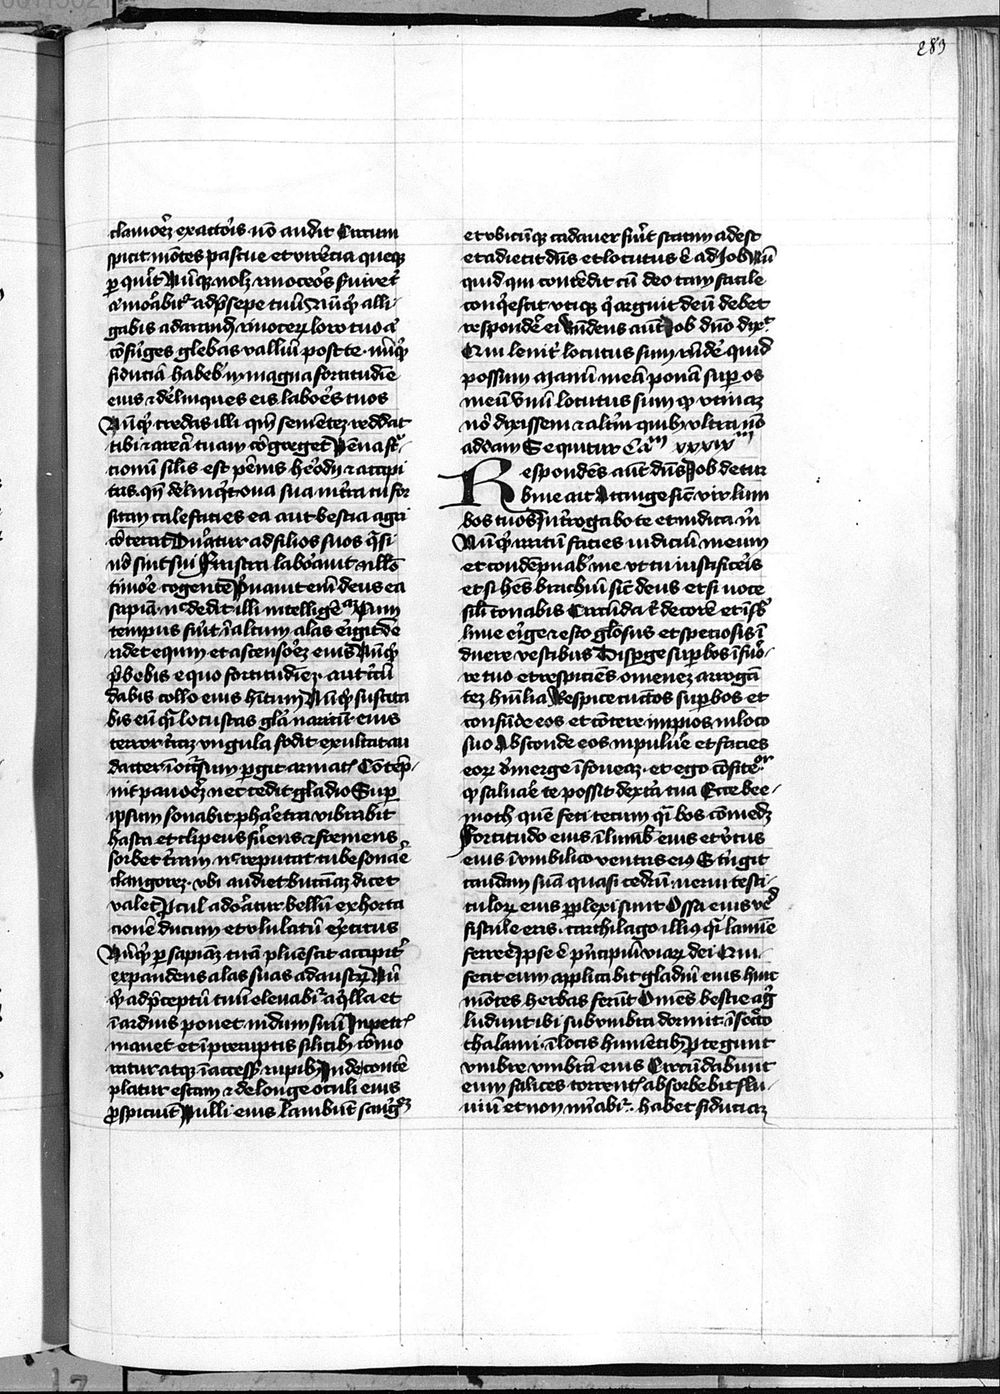 289
clamorē exactoris nō audit Circum
spicit mōtes pascue et virētia queqz
per quirit Nūquid volet rinoceros seruire t
aut morabitur ad presepe tuū Nūqd alli
gabis ad arandū rinocerū loro tuo aut
cōfriges glebas valliū post te nūqd
fiduciā habebis in magna fortitudīe
eius et derelinques eis labores tuos
Nūqd credas illi qm semētem reddat
tibi et areā tuam cōgreget Penna st
cionū silis est pēnis herodii et accipi
tris. qn derelinqt oua sua in terra tu for
sitan calefacies ea aut bestia agri
cōterat Duratur ad filios suos qsi
nō sint sui Frustra laborauit nullo
timore cogente Priuauit enī deus ea
sapiā nec dedit illi intelligētiam Cum
tempus fuerit ī altum alas erigit de
ridet equum et ascensorem eius Nūqd
prebebis equo fortitudinem aut circū
dabis collo eius hinitum Nūqd suscita
bis eū qsi locustas gloria nariū eius
terror terram vngula fodit exultat au
dacter ī occursum pergit armatis Contēp
nit pauorem nec cedit gladio Super
ipsum sonabit pharetra vibrabit
hasta et clipeus feruens et fremens
sorbet terram nec reputat tube sonare
clangorem vbi audiet bucinam dicet
vah Procul adoratur bellū exhorta
cionē ducum et vlulatū exercitus
Nūqd per sapiam tuā plumescit accipiter
expandens alas suas ad austrum Nū
qd ad preceptū tuū eleuabitur aquila et
ī arduis ponet nidum suū In petris
manet et ī preruptis silicibz cōmo
ratur atqz īaccessis rupibz Inde contē
platur escam et de longe oculi eius
prospiciūt Pulli eius lambunt sanguinem
et vbicūqz cadauer fuerit statim adest
et adiecit dns et locutus ē ad Job Nū
quid qui contēdit cū deo tam facile
conqescit vtiqz qi arguit deū debet
respondere ei Rndens autē Job dno dixit
Qui leuiter locutus sum rndere quid
possum manū meā ponā super os
meū Vnū locutus sum qd vtinam
nō dixissem et alterū quibz vltra nō
addam Sequitur Cam xxxixm
Respondēs autē dns Job de tur
bine ait Accinge sicut vir lum
bos tuos Interrogabo te et indica mihi
Nūqd irritū facies iudiciū meum
et condēpnabis me vt tu iustificeris
et si hēs brachiū sicut deus et si voce
simili tonabis Circūda tibi decorē et ī sub
lime erige et esto gloriosus et speciosis ī
duere vestibus Disperge superbos ī furo
re tuo et respiciēs omnem arrogā
tem humilia Respice cunctos superbos et
confūde eos et cōtere impios in loco
suo Absconde eos in puluere et facies
eorum demerge ī foueam et ego cōfitebor
qd saluare te possit dextera tua Ecce bee
moth quē feci tecum qsi bos comedet
Fortitudo eius ī lumbis eius et virtus
eius ī vmbilico ventris eius Stringit
caudam suā quasi cedrū nerui testi
culorum eius perplexi sunt Ossa eius vt
fistule eris cartilago illius qsi lamine
ferree Ipse ē principiū viarum dei Qui
fecit eum applicabit gladiū eius huic
mōtes herbas ferūt Omēs bestie agri
ludunt ibi sub vmbra dormit ī secreto
thalami ī locis humētibz Protegunt
vmbre vmbrā eius Circūdabunt
eum salices torrentis absorbebit flu
uiū et non mirabitur habet fiduciam